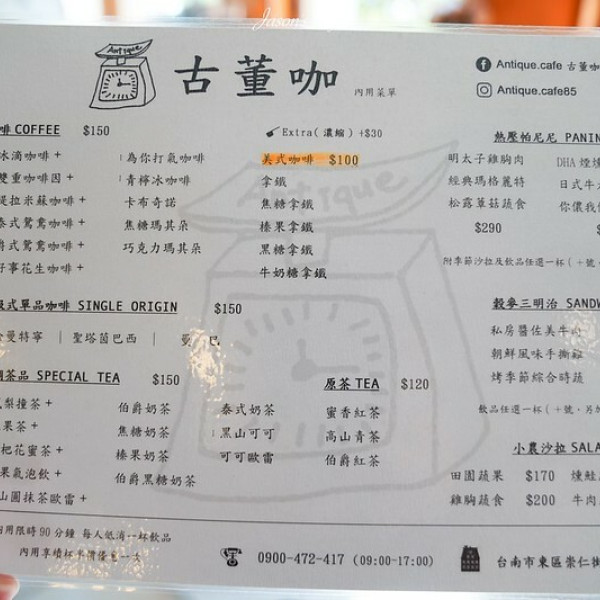 Jason
Antique
古董咖
內用菜單
Antique.cafe 古董咖
Antique.cafe85
啡 COFFEE $150
冰滴咖啡+
雙重咖啡因+
提拉米蘇咖啡+
泰式鴛鴦咖啡+
爵式鴛鴦咖啡+
好事花生咖啡+
為你打氣咖啡
青檸冰咖啡
卡布奇諾
焦糖瑪其朵
巧克力瑪其朵
Extra(濃縮)+$30
美式咖啡 $100
拿鐵
焦糖拿鐵
榛果拿鐵
黑糖拿鐵
牛奶糖拿鐵
式單品咖啡 SINGLE ORIGIN $150
曼特寧 | 聖塔茵巴西 |
茶品 SPECIAL TEA $150
梨撞茶+
果茶+
枇花蜜茶+
果氣泡飲+
山圓抹茶歐蕾+
伯爵奶茶
焦糖奶茶
榛果奶茶
伯爵黑糖奶茶
泰式奶茶
黑山可可
可可歐蕾
原茶 TEA $120
蜜香紅茶
高山青茶
伯爵紅茶
熱壓帕尼尼 PANIN
明太子雞胸肉
經典瑪格麗特
松露蕈菇蔬食
$290
DHA煙燻
日式牛
你儂我
附季節沙拉及飲品任選一杯(+號
穀麥三明治 SANDW
私房醬佐美牛
朝鮮風味手撕雞
烤季節綜合時蔬
飲品任選一杯(+號.另加
小農沙拉 SALA
田園蔬果 $170 燻鮭
雞胸蔬食 $200 牛肉
內用限時90分鐘 每人低消一杯飲品
內用享續杯半價優惠一次
0900-472-417 (09:00-17:00)
台南市東區崇仁街